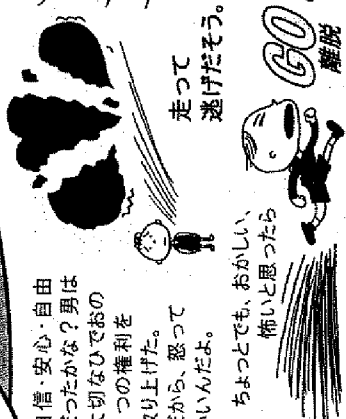 信・安心・自由
ったかな？男は
切なひでおの
つの権利を
り上げた。
から、怒って
いんだよ。
走って
逃げだそう。
ちょっとでも、おかしい、
怖いと思ったら
GO
離脱